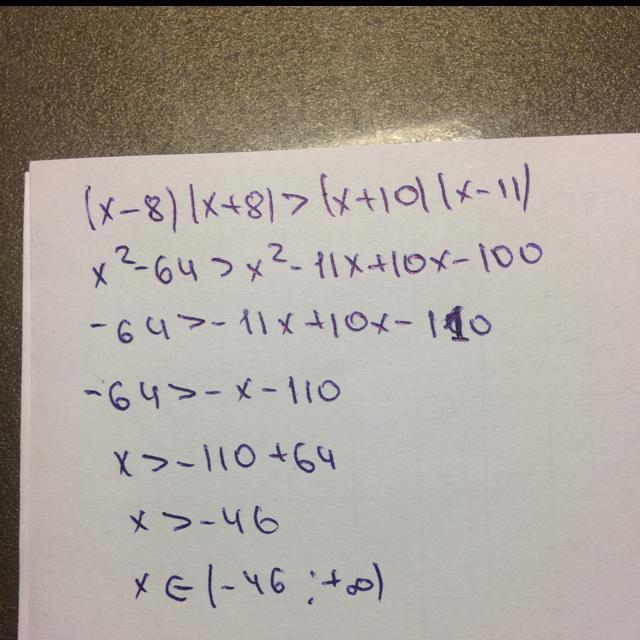 (x-8)(x+8)>(x+10)(x-11)
x²-64>x²-11x+10x-100
-64>-11x+10x-110
-64>-x-110
x>-110+64
x>-46
x∈(-46;+∞)